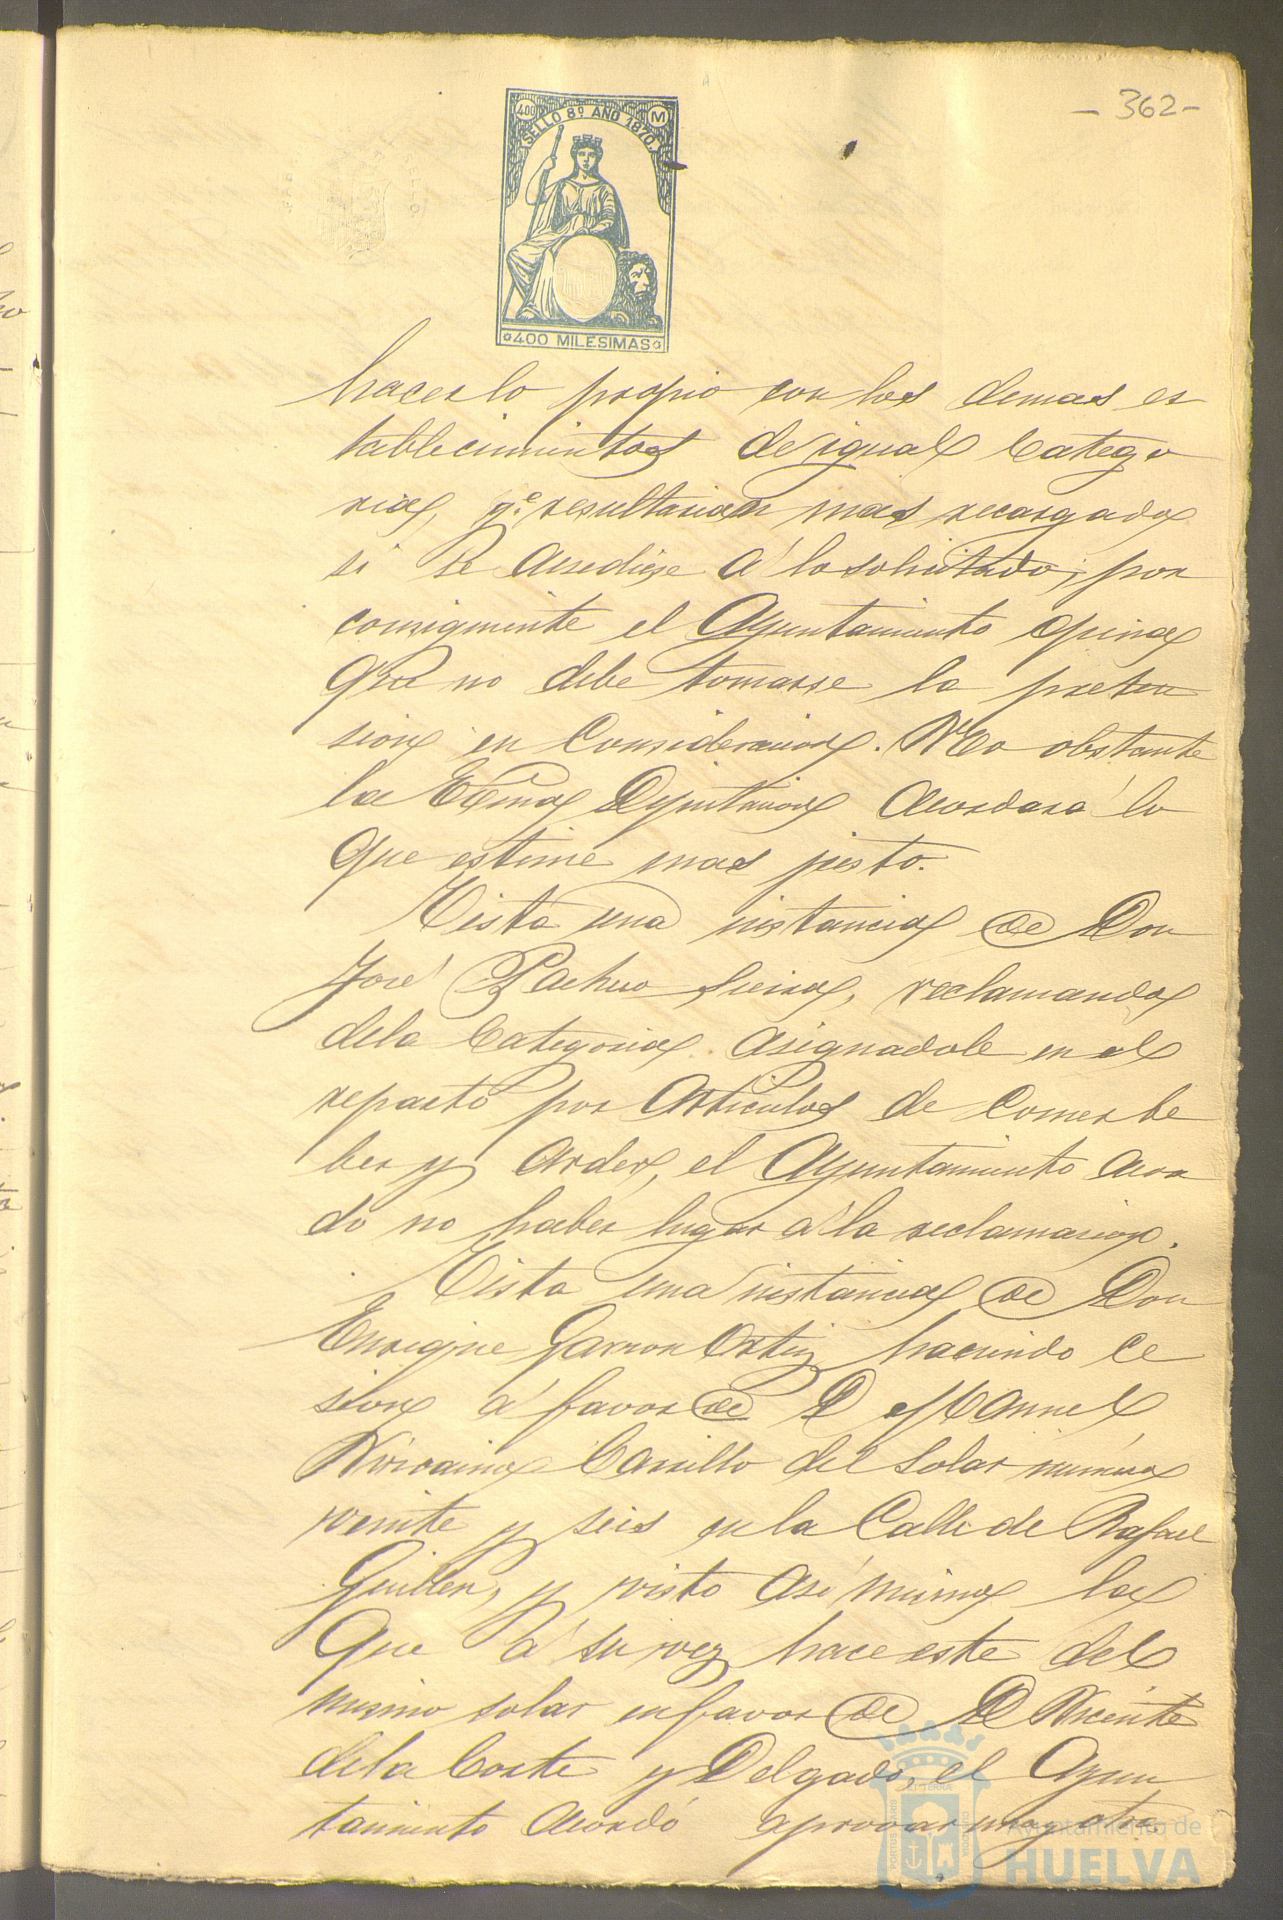 - 362 -
400
SELLO 8º AÑO 1870.
M
400 MILESIMAS
hacerlo propio con los demas es
tablecimientos de igual catego
ria, q.e resultarian mas recargados
si se accediese á lo solicitado; por
consiguiente el Ayuntamiento opina
que no debe tomarse la preten
sion en consideracion. No obstante
la Ecma Diputacion acordará lo
que estime mas justo.
Vista una instancia de Don
José Pacheco Sierra, reclamando
de la categoria asignadole en el
reparto por articulos de comer be
ber y arder, el Ayuntamiento acor
dó no haber lugar á la reclamacion.
Vista una instancia de Don
Enrique Garzon Ortiz haciendo ce
sion á favor de D Manuel
Vizcaino Carrillo del solar número
veinte y seis en la Calle de Rafael
Guillen, y visto asi mismo la
que á su vez hace este del
mismo solar en favor de D Vicente
de la Corte y Delgado, el Ayun
tamiento acordó aprovar una y otra
Ayuntamiento de
HUELVA